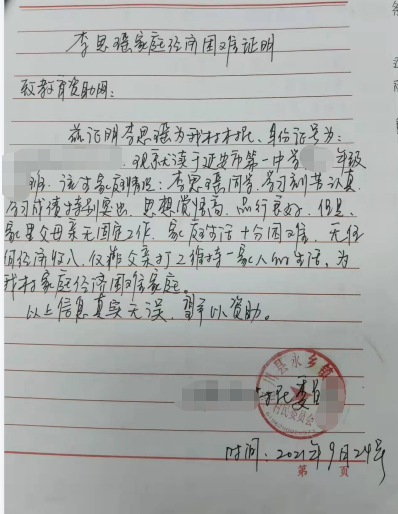 李思瑶家庭经济困难证明
致教育资助网:
兹证明李思瑶为我村村民、身份证号为:
现就读于延安市第一中学 年级
班. 该生家庭情况: 李思瑶同学, 学习刻苦认真,
学习成绩特别突出, 思想觉悟高, 品行良好, 但是,
家里父母亲无固定工作, 家庭生活十分困难, 无任
何经济收入, 仅靠父亲打工维持一家人的生活, 为
我村家庭经济困难家庭。
以上信息真实无误, 望予以资助。
川县永乡镇
村民委员会
村民委员
时间: 2021年9月24号
第 页